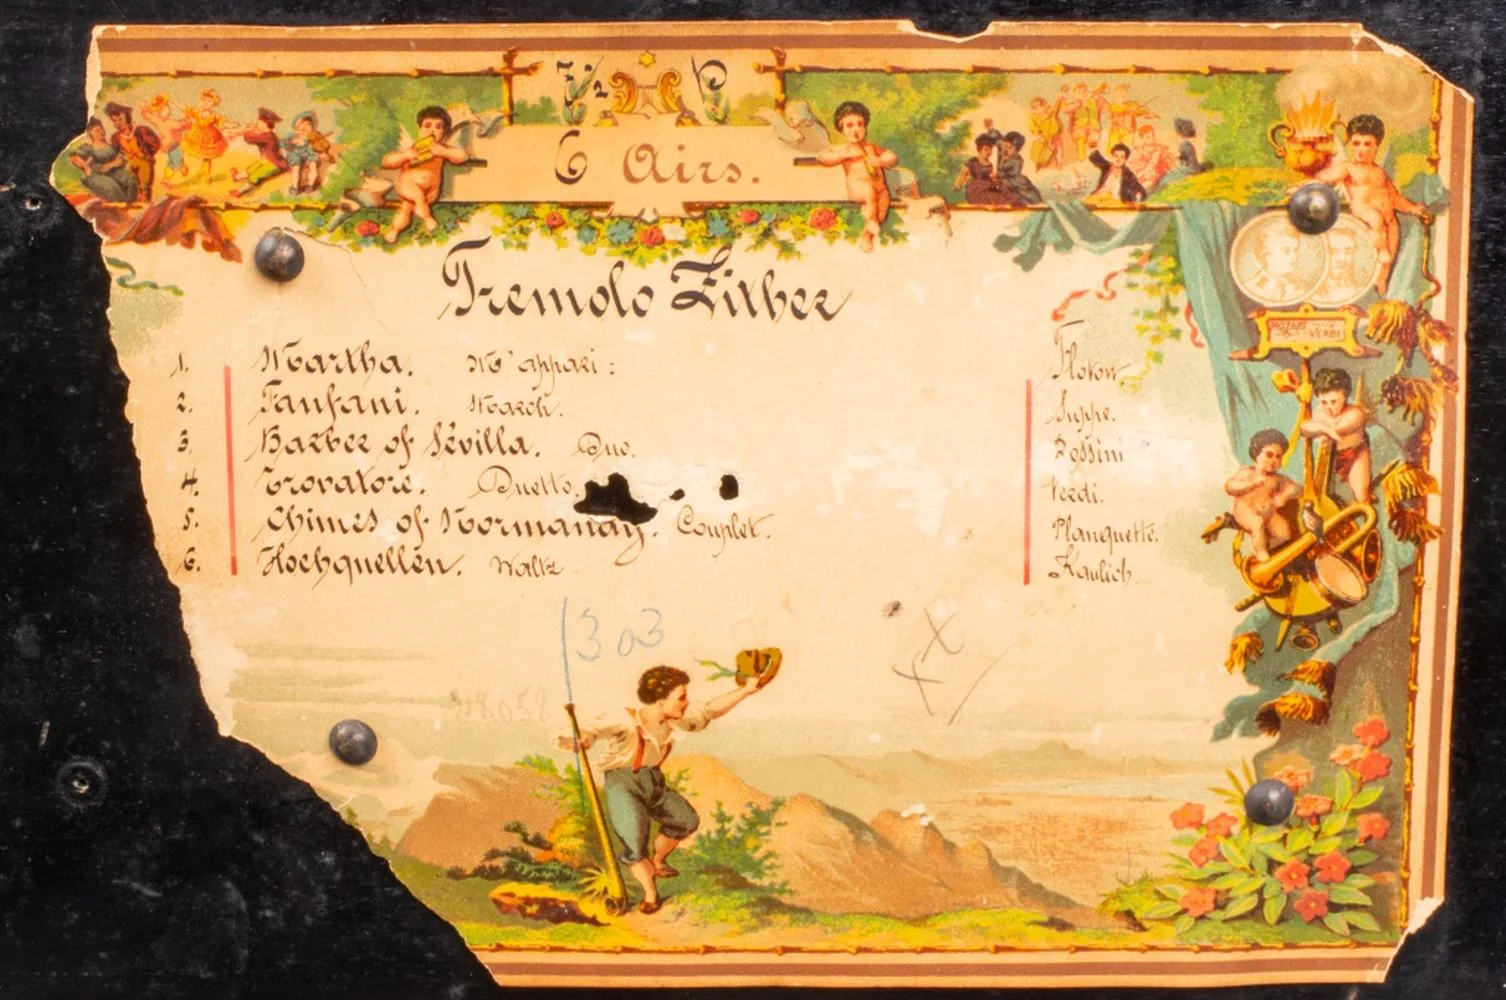 6 Airs.
Tremolo Zither
1. Martha. M'appari: Flotow
2. Fanfani. March. Suppe.
3. Barber of Sévilla. Duo. Rossini
4. Trovatore. Duetto. Verdi.
5. Chimes of Normandy. Couplet. Planquette.
6. Hochquellen. Waltz Kaulich.
MOZART VERDI
303
xx